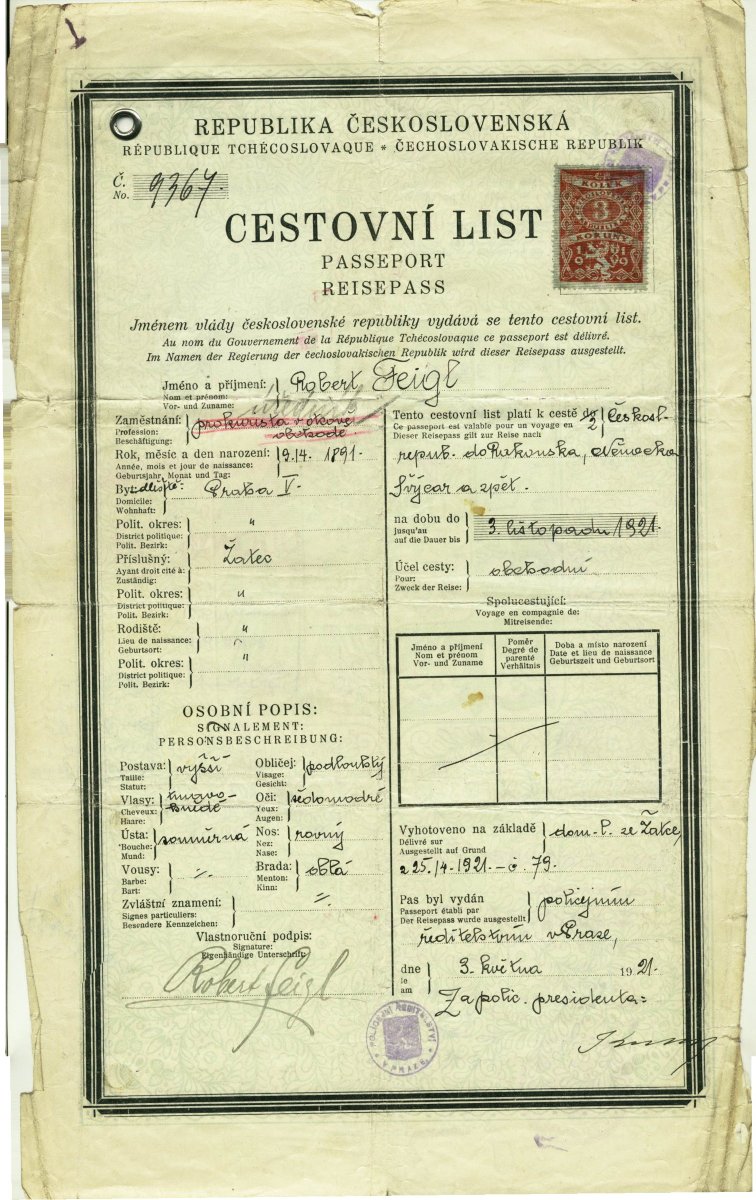 REPUBLIKA ČESKOSLOVENSKÁ
RÉPUBLIQUE TCHÉCOSLOVAQUE * ČECHOSLOVAKISCHE REPUBLIK
Č.
No. 9367.
KOLEK
3
KORUNY
1919
CESTOVNÍ LIST
PASSEPORT
REISEPASS
Jménem vlády československé republiky vydává se tento cestovní list.
Au nom du Gouvernement de la République Tchécoslovaque ce passeport est délivré.
Im Namen der Regierung der čechoslovakischen Republik wird dieser Reisepass ausgestellt.
Jméno a příjmení: Robert Feigl
Nom et prénom:
Vor- und Zuname:
Zaměstnání: prokurista v
Profession: obchodě
Beschäftigung:
Rok, měsíc a den narození: 19./4. 1891.
Année, mois et jour de naissance:
Geburtsjahr, Monat und Tag:
Bydliště: Praha V.
Domicile:
Wohnhaft:
Polit. okres: "
District politique:
Polit. Bezirk:
Příslušný: Žatec
Ayant droit cité à:
Zuständig:
Polit. okres: "
District politique:
Polit. Bezirk:
Rodiště: "
Lieu de naissance:
Geburtsort:
Polit. okres: "
District politique:
Polit. Bezirk:
OSOBNÍ POPIS:
SIGNALEMENT:
PERSONSBESCHREIBUNG:
Postava: vyšší
Taille:
Statur:
Obličej: podlouhlý
Visage:
Gesicht:
Vlasy: tmavo-
Cheveux: hnědé
Haare:
Oči: šedomodré
Yeux:
Augen:
Ústa: souměrná
Bouche:
Mund:
Nos: rovný
Nez:
Nase:
Vousy: ./.
Barbe:
Bart:
Brada: oblá
Menton:
Kinn:
Zvláštní znamení: ./.
Signes particuliers:
Besondere Kennzeichen:
Vlastnoruční podpis:
Signature:
Eigenhändige Unterschrift:
Robert Feigl
Tento cestovní list platí k cestě do Českosl.
Ce passeport est valable pour un voyage en
Dieser Reisepass gilt zur Reise nach
repub. do Rakouska, Německa
Švýcar a zpět.
na dobu do 3. listopadu 1921.
jusqu'au
auf die Dauer bis
Účel cesty: obchodní
Pour:
Zweck der Reise:
Spolucestující:
Voyage en compagnie de:
Mitreisende:
Jméno a příjmení
Nom et prénom
Vor- und Zuname
Poměr
Degré de
parenté
Verhältnis
Doba a místo narození
Date et lieu de naissance
Geburtszeit und Geburtsort
Vyhotoveno na základě dom. l. ze Žatce,
Délivré sur
Ausgestellt auf Grund
z 25./4. 1921. - č. 79.
Pas byl vydán policejním
Passeport établi par
Der Reisepass wurde ausgestellt
ředitelstvím v Praze,
dne 3. května 1921.
le
am
Za polic. presidenta:
POLICEJNÍ ŘEDITELSTVÍ
V PRAZE